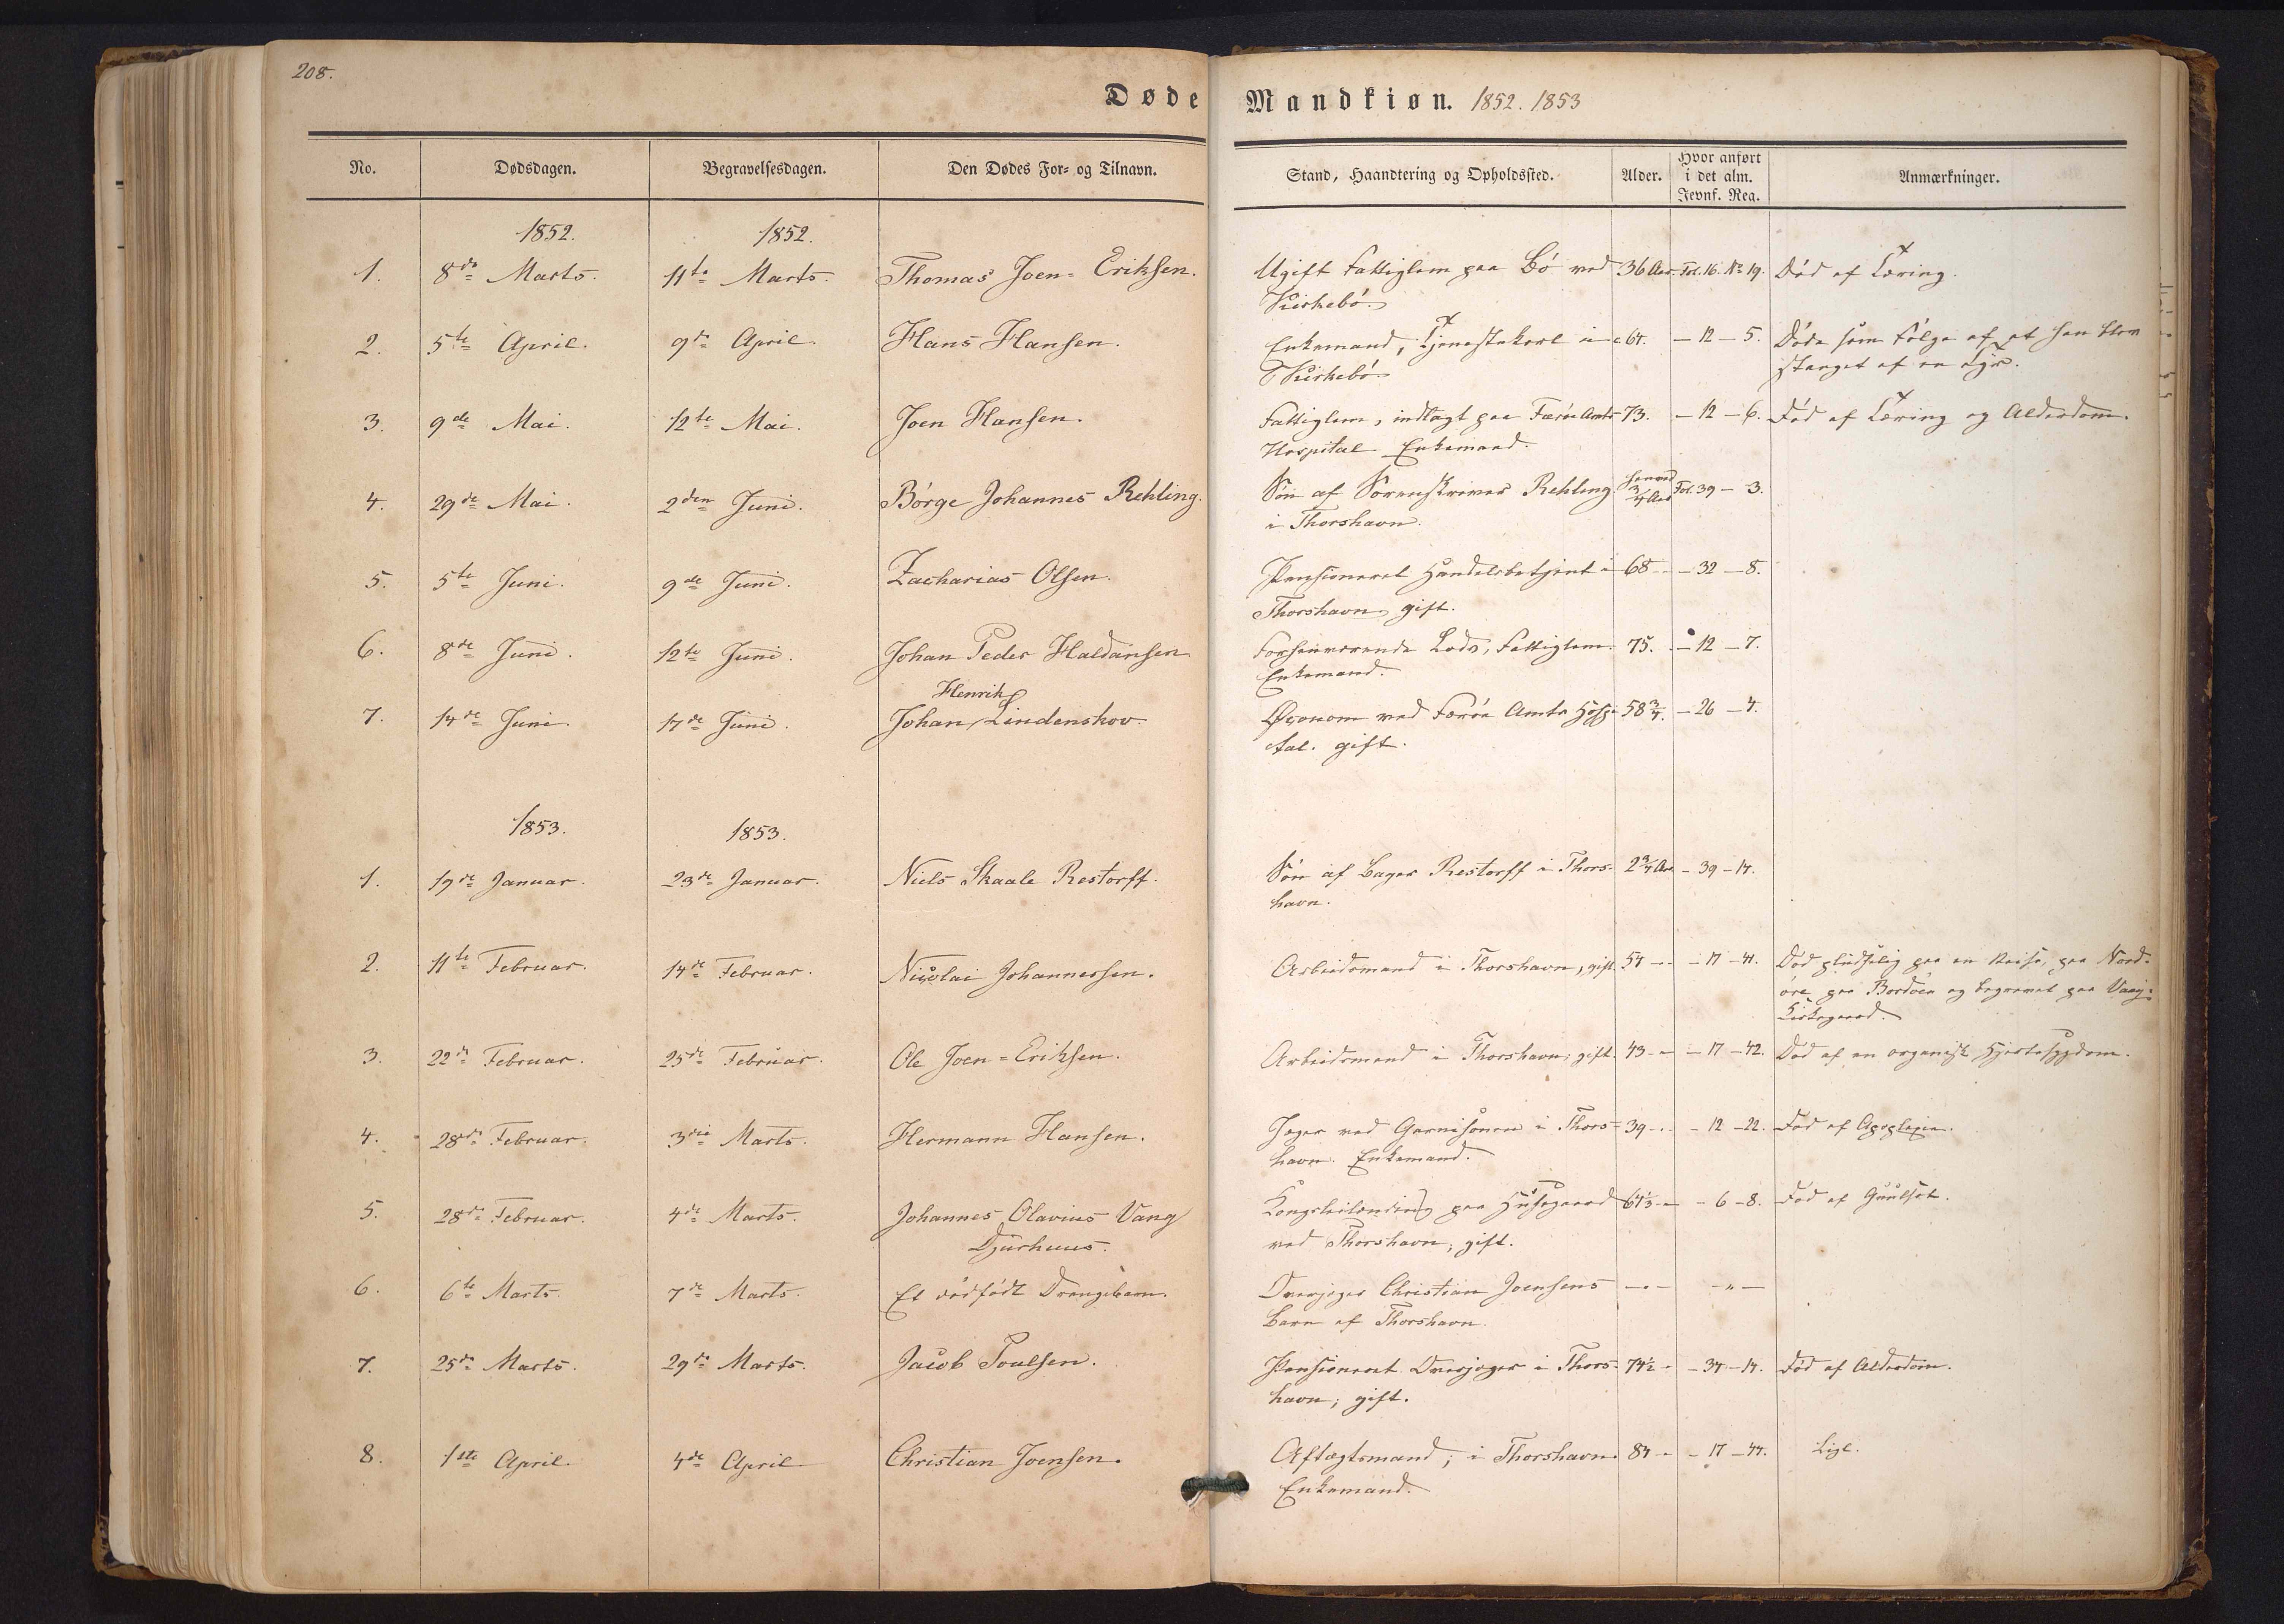 208.
Døde Mandkiøn. 1852. 1853
No. Dødsdagen. Begravelsesdagen. Den Dødes For- og Tilnavn. Stand, Haandtering og Opholdssted. Alder. Hvor anført i det alm. Jevnf. Reg. Anmærkninger.
1852. 1852.
1. 8de Marts. 11te Marts. Thomas Joen-Eriksen. Ugift Fattiglem paa Bö ved 36 Aar. Fol. 16. No 19. Död af Tæring.
Kirkebö.
2. 5te April. 9de April. Hans Hansen. Enkemand, Tjenestekarl i 64. – 12 – 5. Döde som Fölge af at han blev
Kirkebö. stanget af en Tyr.
3. 9de Mai. 12te Mai. Joen Hansen. Fattiglem, indlagt paa Færöe Amts 73. – 12 – 6. Död af Tæring og Alderdom.
Hospital. Enkemand.
4. 29de Mai. 2den Juni. Börge Johannes Rehling. Sön af Sorenskriver Rehling 3/4 Aar Fol. 39 – 3.
i Thorshavn.
5. 5te Juni. 9de Juni. Zacharias Olsen. Pensioneret Handelsbetjent i 68 – – 32 – 8.
Thorshavn, gift.
6. 8de Juni. 12te Juni. Johan Peder Haldansen Forhenværende Lods, Fattiglem. 75. – 12 – 7.
Enkemand.
Henrik
7. 14de Juni. 17de Juni. Johan Lindenskov. Øconom ved Færöe Amts Hospi- 58 3/4. – 26 – 4.
tal. gift.
1853. 1853.
1. 19de Januar. 23de Januar. Niels Skaale Restorff. Sön af Bager Restorff i Thors- 2 3/4 Aar – 39 – 14.
havn.
2. 11te Februar. 14de Februar. Nicolai Johannessen. Arbeidsmand i Thorshavn, gift. 54 – – 17 – 41. Död pludselig paa en Reise, paa Nord-
öre paa Bordöen og begravet paa Vaag-
Kirkegaard.
3. 22de Februar. 25de Februar. Ole Joen-Eriksen. Arbeidsmand i Thorshavn; gift. 43 – – 17 – 42. Död af en organisk Hjertesygdom.
4. 28de Februar. 3die Marts. Hermann Hansen. Jæger ved Garnisonen i Thors- 39 – – 12 – 22. Död af Apoplexie.
havn. Enkemand.
5. 28de Februar. 4de Marts. Johannes Olavius Vang Kongsleilænding paa Husegaard 64 1/3 – – 6 – 8. Död af Guulsot.
Djurhuus. ved Thorshavn, gift.
6. 6te Marts. 7de Marts. Et dödfödt Drengebarn. Overjæger Christian Joensens – " – – " –
Barn af Thorshavn.
7. 25de Marts. 29de Marts. Jacob Poulsen. Pensioneret Overjæger i Thors- 74 1/2 – – 34 – 14. Död af Alderdom.
havn; gift.
8. 1ste April. 4de April. Christian Joensen. Aftægtsmand, i Thorshavn. 84 – – 17 – 44. Lige.
Enkemand.